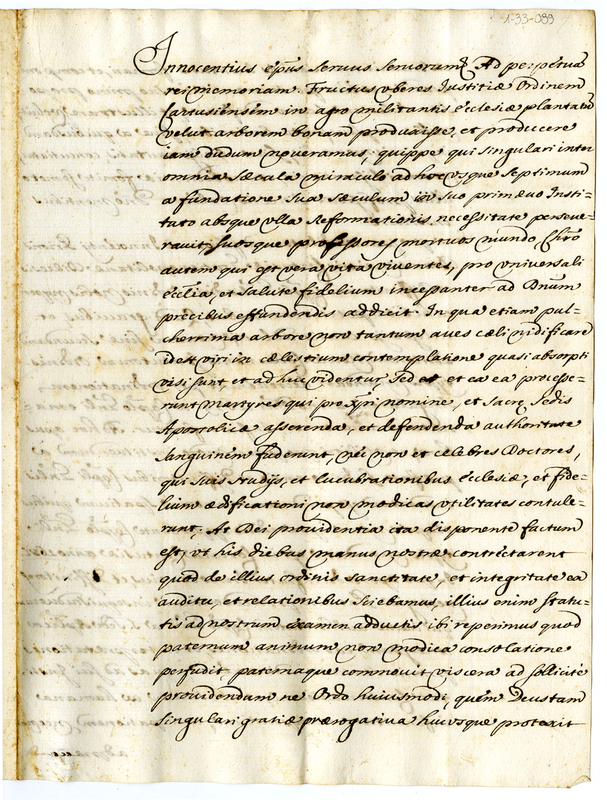 1-33-099
Innocentius ep̃us Servus Servorum Ad perpetuã
rei memoriam. Fructus uberes Justitiæ Ordinem
Cartusiensem in agro militantis ecclesiæ plantatũ
velut arborem bonam produxisse, et producere
iam dudum noveramus: quippe qui singulari inter
omnia sæcula miraculo ad hoc usque septimum
a fundatione sua sæculum in suo primævo Insti-
tuto absque ulla Reformationis necessitate perseve-
ravit, suosque professores mortuos mundo, Chr̃o
autem qui est vera vita viventes, pro universali
ecclia, et salute fidelium incessanter ad Dnũm
precibus effundendis addicit. In qua etiam pul-
cherrima arbore non tantum aves cæli nidificare
id est viri in cælestium contemplatione quasi absorpti
visi sunt et ad huc videntur, sed et ex ea processe-
runt martyres qui pro Xp̃i nomine, et sacrę sedis
Apostolicæ asserenda, et defendenda authoritate
sanguinem fuderunt, nec non et celebres Doctores,
qui suis studijs, et lucubrationibus ecclesiæ, et fide-
lium ædificationi non modicas utilitates contule-
runt; At Dei providentia ita disponente factum
est, ut his diebus manus nostræ contrectarent
quod de illius ordinis sanctitate, et integritate ex
auditu, et relationibus sciebamus, illius enim statu-
tis ad nostrum examen adductis ibi reperimus quod
paternum animum non modica consolatione
perfudit paternaque commovit viscera ad sollicite
providendum ne Ordo huiusmodi, quem Deus tam
singulari gratiæ prærogativa hucusque protexit